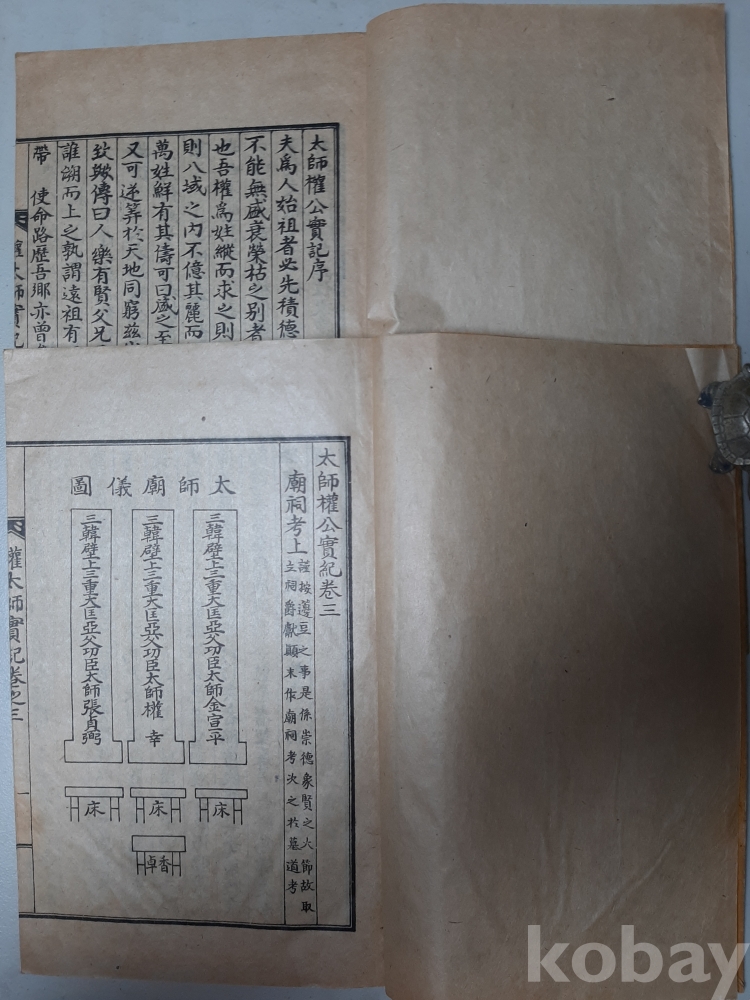 太師權公實記序
夫爲人始祖者必先積德
不能無盛衰榮枯之别者
也吾權爲姓縱而求之則
則八域之內不億其麗而
萬姓鮮有其儔可曰盛之至
又可逆筭於天地同窮玆
致歟傳曰人樂有賢父兄
誰溯而上之孰謂遠祖有
帶 使命路歷吾鄉亦曾
權太師實紀
太師權公實紀卷三
廟祠考上
謹按籩豆之事是係崇德象賢之大節故取
立祠爵獻顚末作廟祠考次之於墓道考
太師廟儀圖
三韓壁上三重大匡亞父功臣太師金宣平
三韓壁上三重大匡亞父功臣太師權 幸
三韓壁上三重大匡亞父功臣太師張貞弼
床
床
床
香卓
權太師實紀卷之三
一
kobay